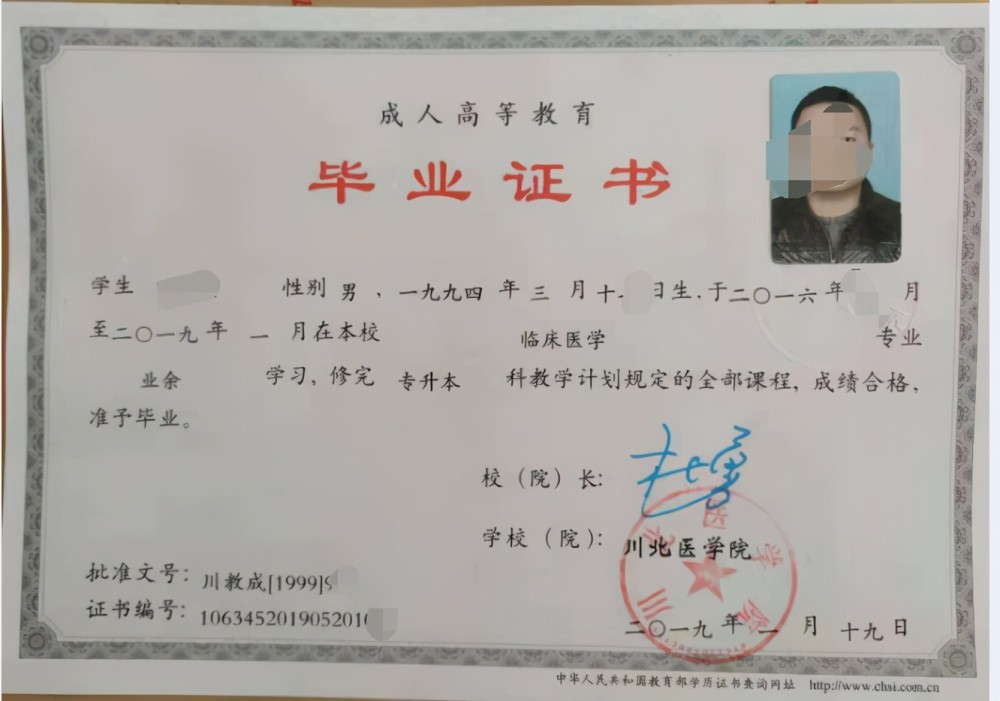 成人高等教育
毕业证书
学生 性别 男 ，一九九四 年 三 月 十 日生，于二〇一六 年 月
至二〇一九 年 一 月在本校 临床医学 专业
业余 学习，修完 专升本 科教学计划规定的全部课程，成绩合格，
准予毕业。
校（院）长：
学校（院）：川北医学院
批准文号：川教成[1999]9
证书编号：10634520190520
二〇一九 年 一 月 十九 日
川北医学院
中华人民共和国教育部学历证书查询网址 http://www.chsi.com.cn